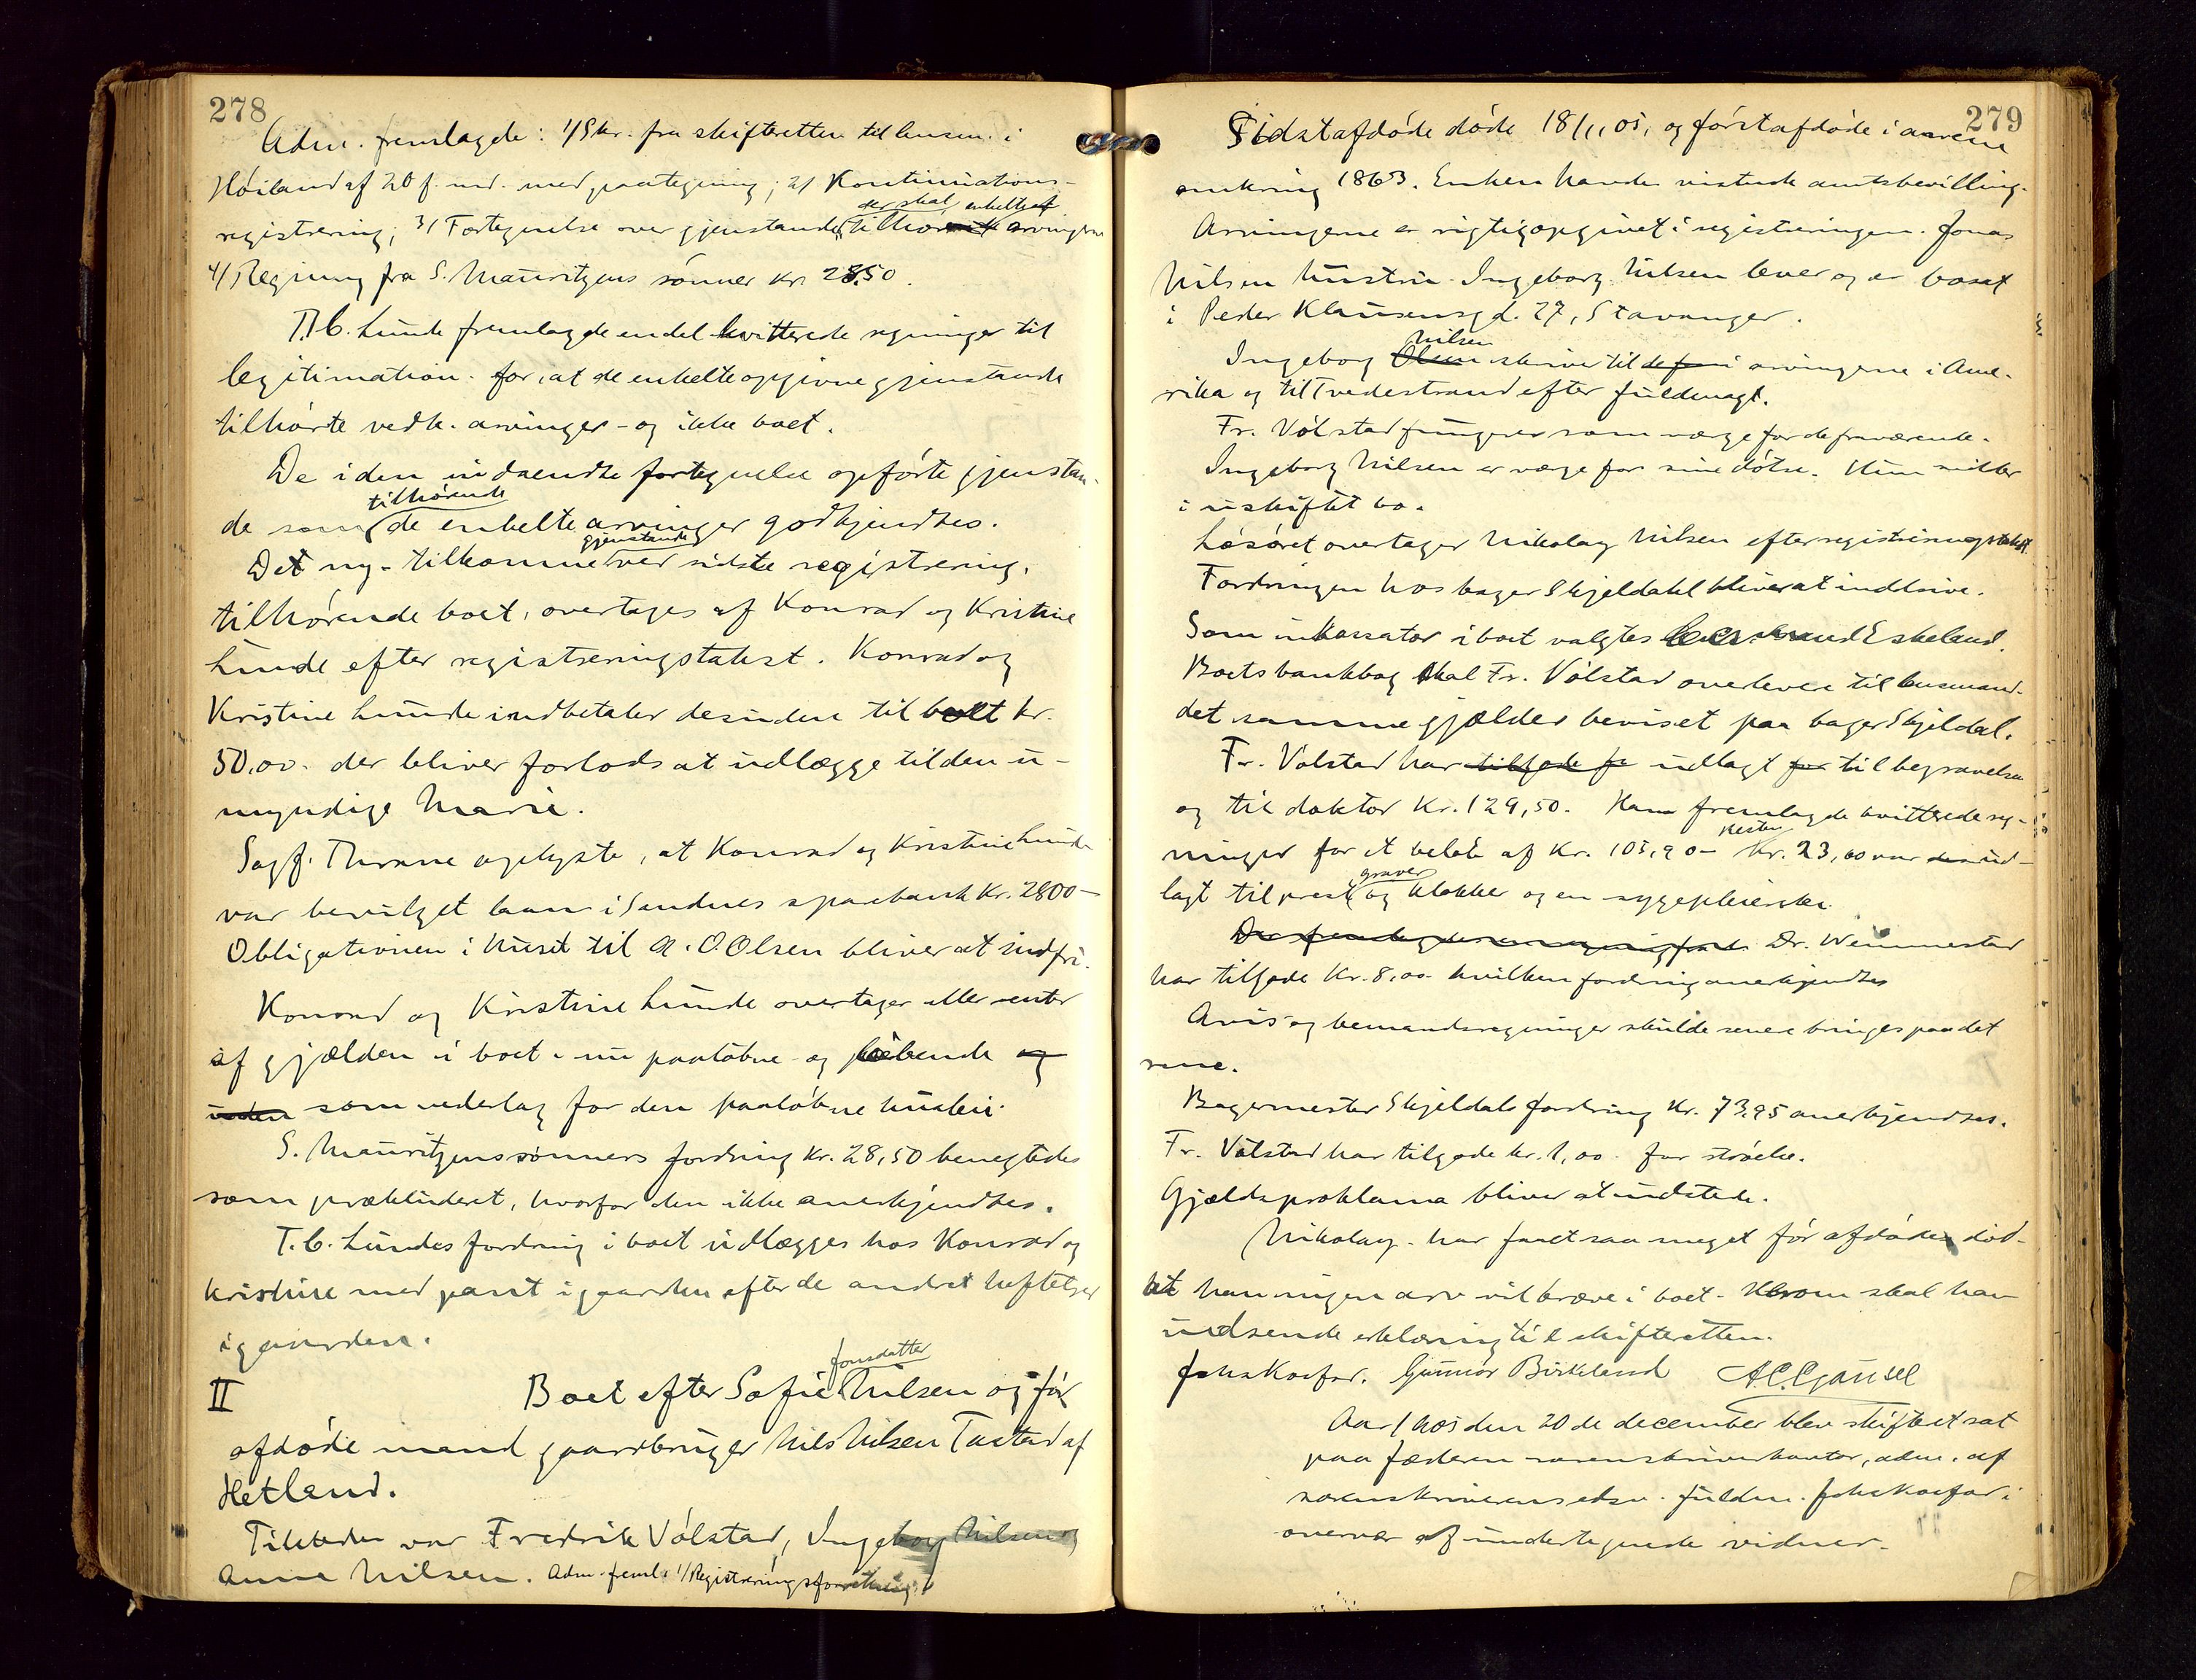 278
Adm. fremlagde: 1/ Skr. fra skifteretten til lensm. i
Høiland af 20 f. md. med paategning; 2/ Kontinuations-
registrering; 3/ Fortegnelse over gjenstande, der skal tilhøre enkelte af arvingerne
4/ Regning fra S. Mauritzens sønner kr. 28.50.
T. C. Lunde fremlagde endel kvitterede regninger til
legitimation for, at de enkelte opgivne gjenstande
tilhørte vedk. arvinger - og ikke boet.
De i den indsendte fortegnelse opførte gjenstan-
de som tilhørende de enkelte arvinger godkjendtes.
Det ny-tilkomne gjenstande ved sidste registrering,
tilhørende boet, overtages af Konrad og Kristine
Lunde efter registreringstakst. Konrad og
Kristine Lunde indbetaler desuden til boet kr.
50,00 der bliver forlods at udlægge til den u-
myndige Marie.
Sagf. Thrane oplyste, at Konrad og Kristine Lunde
var bevilget laan i Sandnes sparebank kr. 2800 -
Obligationen i huset til N. O. Olsen bliver at indfri.
Konrad og Kristine Lunde overtager alle renter
af gjælden i boet - nu paaløbne og løbende og
uden som vederlag for den paaløbne husleie.
S. Mauritzens sønners fordring kr. 28,50 benegtedes
som prækluderet, hvorfor den ikke anerkjendtes.
T. C. Lundes fordring i boet udlægges hos Konrad og
Kristine med pant i gaarden efter de andre heftelser
i gaarden.
II Boet efter Sofie Jonsdatter Nilsen og før
afdøde mand gaardbruger Nils Nilsen Tastad af
Hetland.
Tilstede var Fredrik Vølstad, Ingeborg Nilsen og
Anna Nilsen. Adm. freml: 1/ Registreringsforretning
279
Sidstafdøde døde 18/11 05, og førstafdøde i aarene
omkring 1863. Enken havde vistnok amtsbevilling.
Arvingerne er rigtig opgivet i registreringen. Jonas
Nilsen hustru Ingeborg Nilsen lever og er bosat
i Peder Klausensgd. 27, Stavanger.
Ingeborg Olsen Nilsen skriver til de arvingerne i Ame-
rika og til Tvedestrand efter fuldmagt.
Fr. Vølstad fungerer som værge for de fraværende.
Ingeborg Nilsen er værge for sine døtre. Hun sidder
i uskiftet bo.
Løsøret overtager Nikolay Nilsen efter registreringstakst.
Fordringen hos bager Skjeldahl bliver at inddrive.
Som inkassator i boet valgtes lensmand Eskeland.
Boets bankbog skal Fr. Vølstad overlevere til lensmand.
det samme gjælder beviset paa bager Skjeldal.
Fr. Vølstad har tilgode for udlagt for til begravelsen
og til doktor kr. 129,50. Han fremlagde kvitterede reg-
ninger for et beløb af kr. 105,90 - resten kr. 23,60 var ud-
lagt til prest, graver og klokker og en sygepleierske.
Dr. Wennnestad
har tilgode kr. 8,00 hvilken fordring anerkjendtes
Avis og lensmandsregninger skulde senere bringes paa det
rene.
Bagermester Skjeldals fordring kr. 73.95 anerkjendtes.
Fr. Vølstad har tilgode kr. 1,00 for strøelse.
Gjældsproklama bliver at udstede.
Nikolay har faaet saa meget før afdødes død
at han ingen arv vil kræve i boet. Herom skal han
indsende erklæring til skifteretten.
Joh. Koefoed. Gunnar Birkeland A. C. Gausel
Aar 1905 den 20de december blev skifteret sat
paa Jæderen sorenskriverkontor, adm. af
sorenskriverens edsv. fuldm. Joh. Koefoed i
overvær af undertegnede vidner.